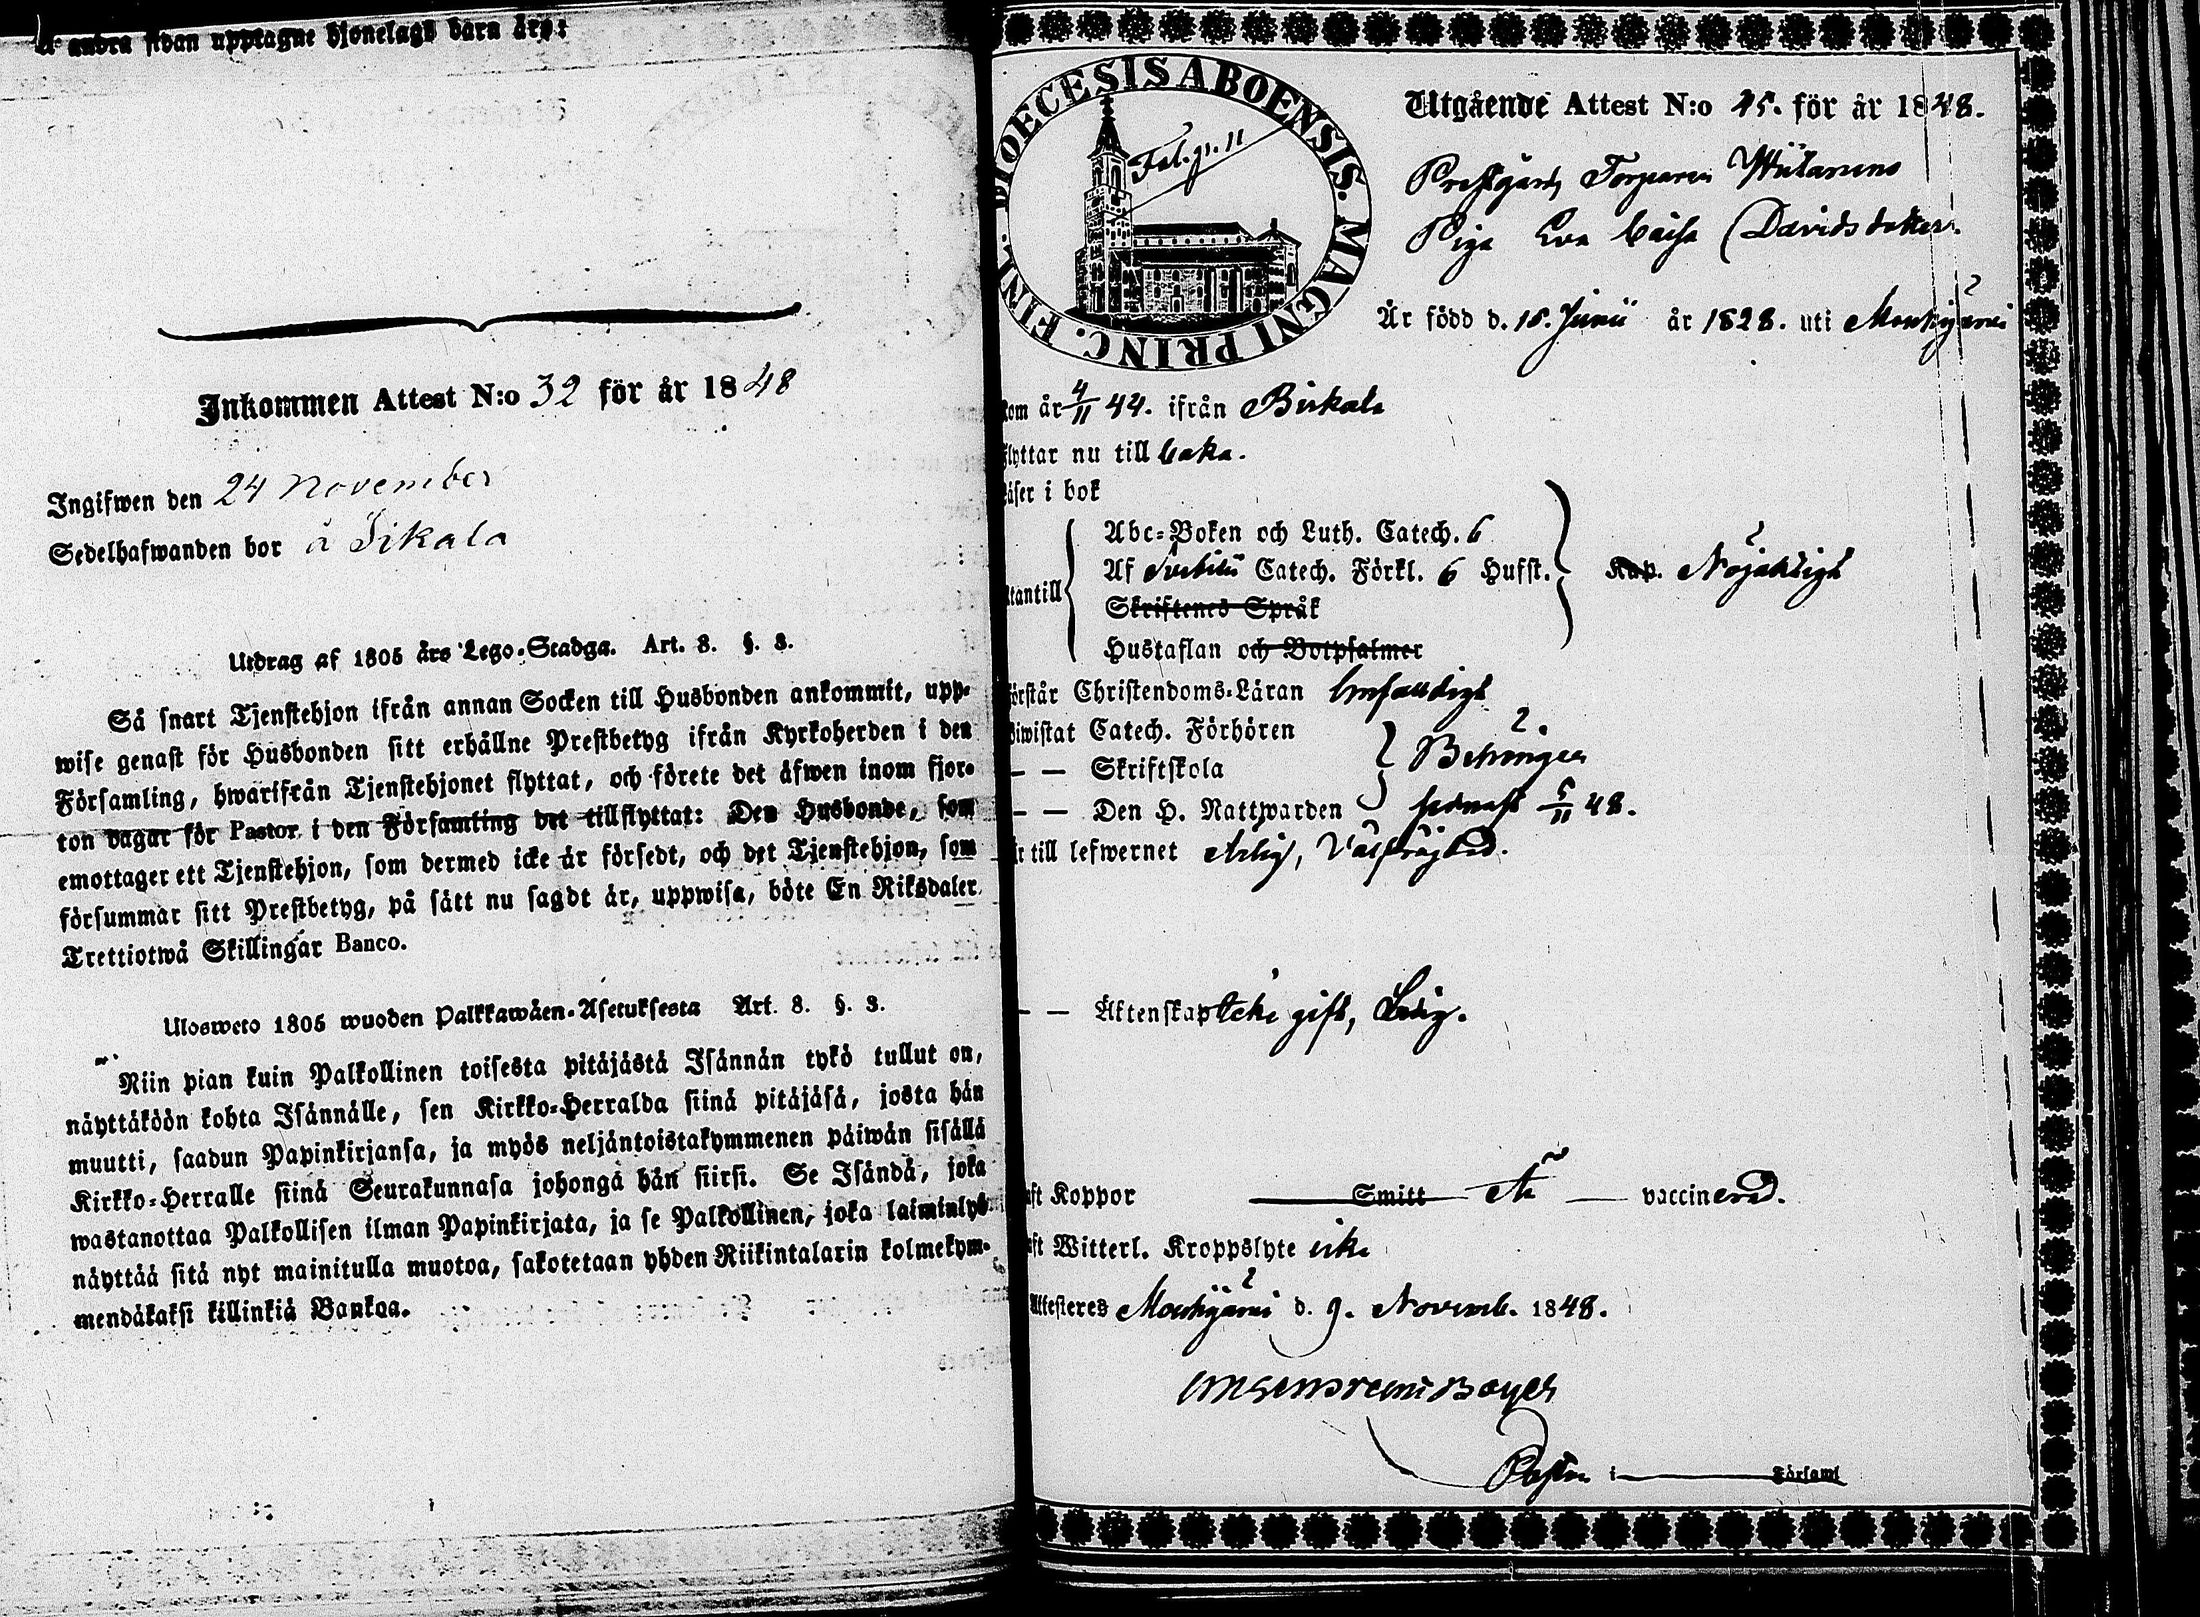 å andra sidan upptagne hjonelags barn äro:
Inkommen Attest N:o 32 för år 1848
Ingifwen den 24 November
Sedelhafwanden bor å Sikala
Utdrag af 1805 års Lego-Stadga. Art. 8. §. 3.
Så snart Tjenstehjon ifrån annan Socken till Husbonden ankommit, upp-
wise genast för Husbonden sitt erhållne Prestbetyg ifrån Kyrkoherden i den
Församling, hwarifrån Tjenstehjonet flyttat, och förete det äfwen inom fjor-
ton dagar för Pastor i den Församling det tillflyttat: Den Husbonde, som
emottager ett Tjenstehjon, som dermed icke är försedt, och det Tjenstehjon, som
försummar sitt Prestbetyg, på sätt nu sagdt är, uppwisa, böte En Riksdaler
Trettiotwå Skillingar Banco.
Ulosweto 1805 wuoden Palkkawäen-Asetuksesta Art. 8. §. 3.
Niin pian kuin Palkollinen toisesta pitäjästä Isännän tykö tullut on,
näyttäköön kohta Isännälle, sen Kirkko-Herralda siinä pitäjäsä, josta hän
muutti, saadun Papinkirjansa, ja myös neljäntoistakymmenen päiwän sisällä
Kirkko-Herralle siinä Seurakunnasa johonga hän siirsi. Se Isändä, joka
wastanottaa Palkollisen ilman Papinkirjata, ja se Palkollinen, joka laiminlyö
näyttää sitä nyt mainitulla muotoa, sakotetaan yhden Riikintalarin kolmekym-
mendäkaksi killinkiä Bankaa.
DIOECESIS ABOENSIS. MAGNI PRINC. FINL.
Utgående Attest N:o 45. för år 1848.
Prestgårds Torparen
Piga Eva Caisa Davidsdotter.
Är född d. 18. Junii år 1828. uti Mouhijärvi
kom år 4/11 44. ifrån Birkala
flyttar nu till baka.
Läser i bok
Utantill
Abc-Boken och Luth. Catech. 6
Af Svebilii Catech. Förkl. 6 Hufst. Kap. Nöjaktigt
Skriftenes Språk
Hustaflan och Botpsalmer
Förstår Christendoms-Läran Enfaldigt
Biwistat Catech. Förhören
— — Skriftskola Behörigen
— — Den H. Nattwarden senast 5/11 48.
Är till lefwernet Ärlig, Välfräjdad.
— — Äktenskap Icke gift, Ledig.
Haft Koppor Smitt Är vaccinerad.
Haft Witterl. Kroppslyte icke
Attesteres Mouhijärvi d. 9. Novemb. 1848.
Pastor i Församl